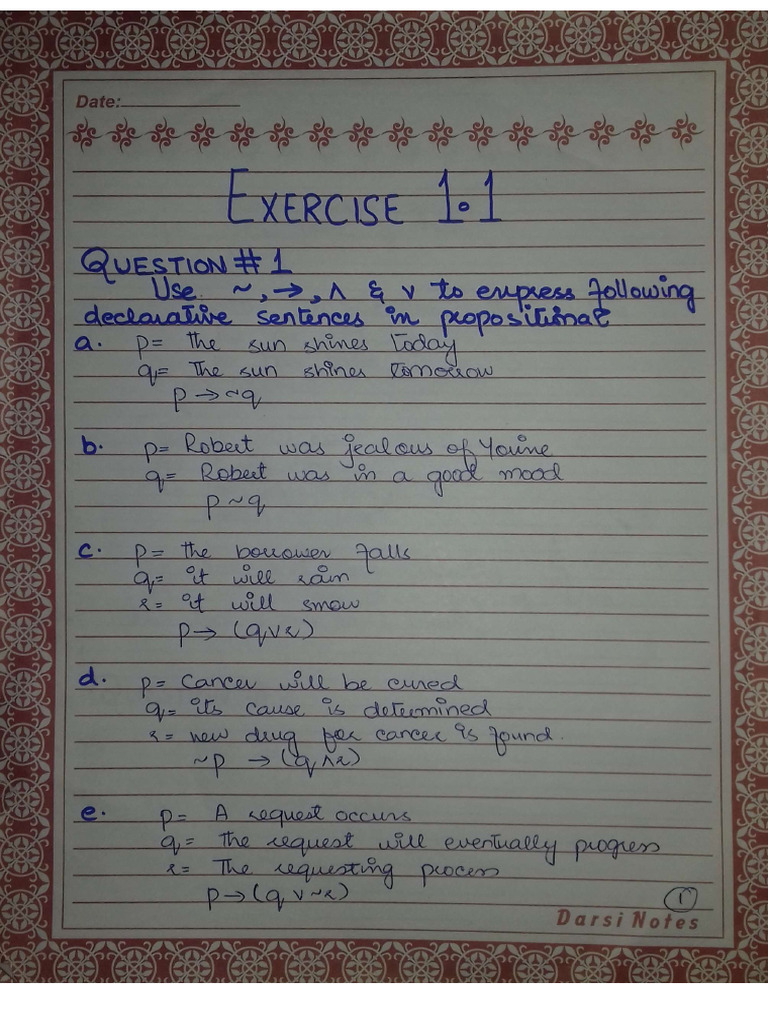 Date:
EXERCISE 1.1
QUESTION # 1
Use ~, →, ∧ & ∨ to express following
declarative sentences in propositional
a. p= the sun shines today
q= The sun shines tomorrow
p → ~q
b. p= Robert was jealous of Yvine
q= Robert was in a good mood
p ~ q
c. p= the borrower falls
q= it will rain
r= it will snow
p → (q∨r)
d. p= Cancer will be cured
q= its cause is determined
r= new drug for cancer is found.
~p → (q∧r)
e. p= A request occurs
q= The request will eventually progress
r= The requesting process
p → (q ∨ ~r)
1
Darsi Notes